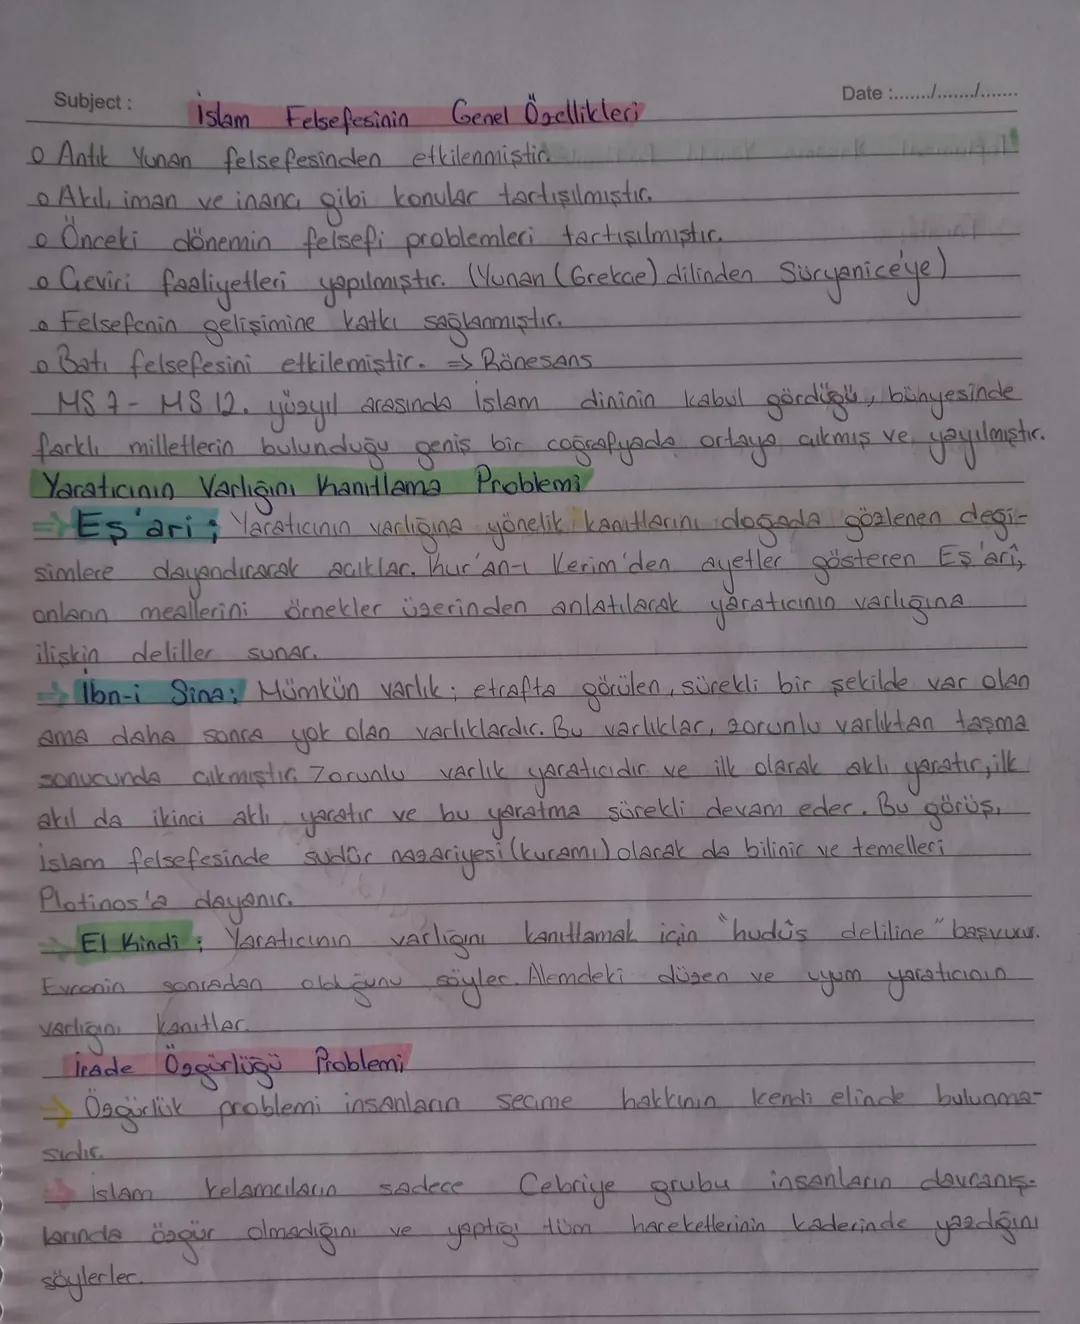 Subject : İslam Felsefesinin Genel Özellikleri Date :......./......./.......
o Antik Yunan felsefesinden etkilenmiştir.
o Akıl, iman ve inanç gibi konular tartışılmıştır.
o Önceki dönemin felsefi problemleri tartışılmıştır.
o Çeviri faaliyetleri yapılmıştır. (Yunan (Grekçe) dilinden Süryanice'ye)
o Felsefenin gelişimine katkı sağlanmıştır.
o Batı felsefesini etkilemiştir. => Rönesans
MS 7 - MS 12. yüzyıl arasında İslam dininin kabul gördüğü, bünyesinde
farklı milletlerin bulunduğu geniş bir coğrafyada ortaya çıkmış ve yayılmıştır.
Yaratıcının Varlığını Kanıtlama Problemi
=> Eş'ari ; Yaratıcının varlığına yönelik kanıtlarını doğada gözlenen deği-
şimlere dayandırarak açıklar. Kur'an-ı Kerim'den ayetler gösteren Eş'arî,
onların meallerini örnekler üzerinden anlatılarak yaratıcının varlığına
ilişkin deliller sunar.
=> İbn-i Sina; Mümkün varlık; etrafta görülen, sürekli bir şekilde var olan
ama daha sonra yok olan varlıklardır. Bu varlıklar, zorunlu varlıktan taşma
sonucunda çıkmıştır. Zorunlu varlık yaratıcıdır ve ilk olarak aklı yaratır, ilk
akıl da ikinci aklı yaratır ve bu yaratma sürekli devam eder. Bu görüş,
İslam felsefesinde sudûr nazariyesi (kuramı) olarak da bilinir ve temelleri
Plotinos'a dayanır.
=> El Kindi ; Yaratıcının varlığını kanıtlamak için "hudûs deliline" başvurur.
Evrenin sonradan olduğunu söyler. Alemdeki düzen ve uyum yaratıcının
varlığını kanıtlar.
İrade Özgürlüğü Problemi
=> Özgürlük problemi insanların seçme hakkının kendi elinde bulunma-
sıdır.
=> İslam kelamcıların sadece Cebriye grubu insanların davranış-
larında özgür olmadığını ve yaptığı tüm hareketlerinin kaderinde yazdığını
söylerler.